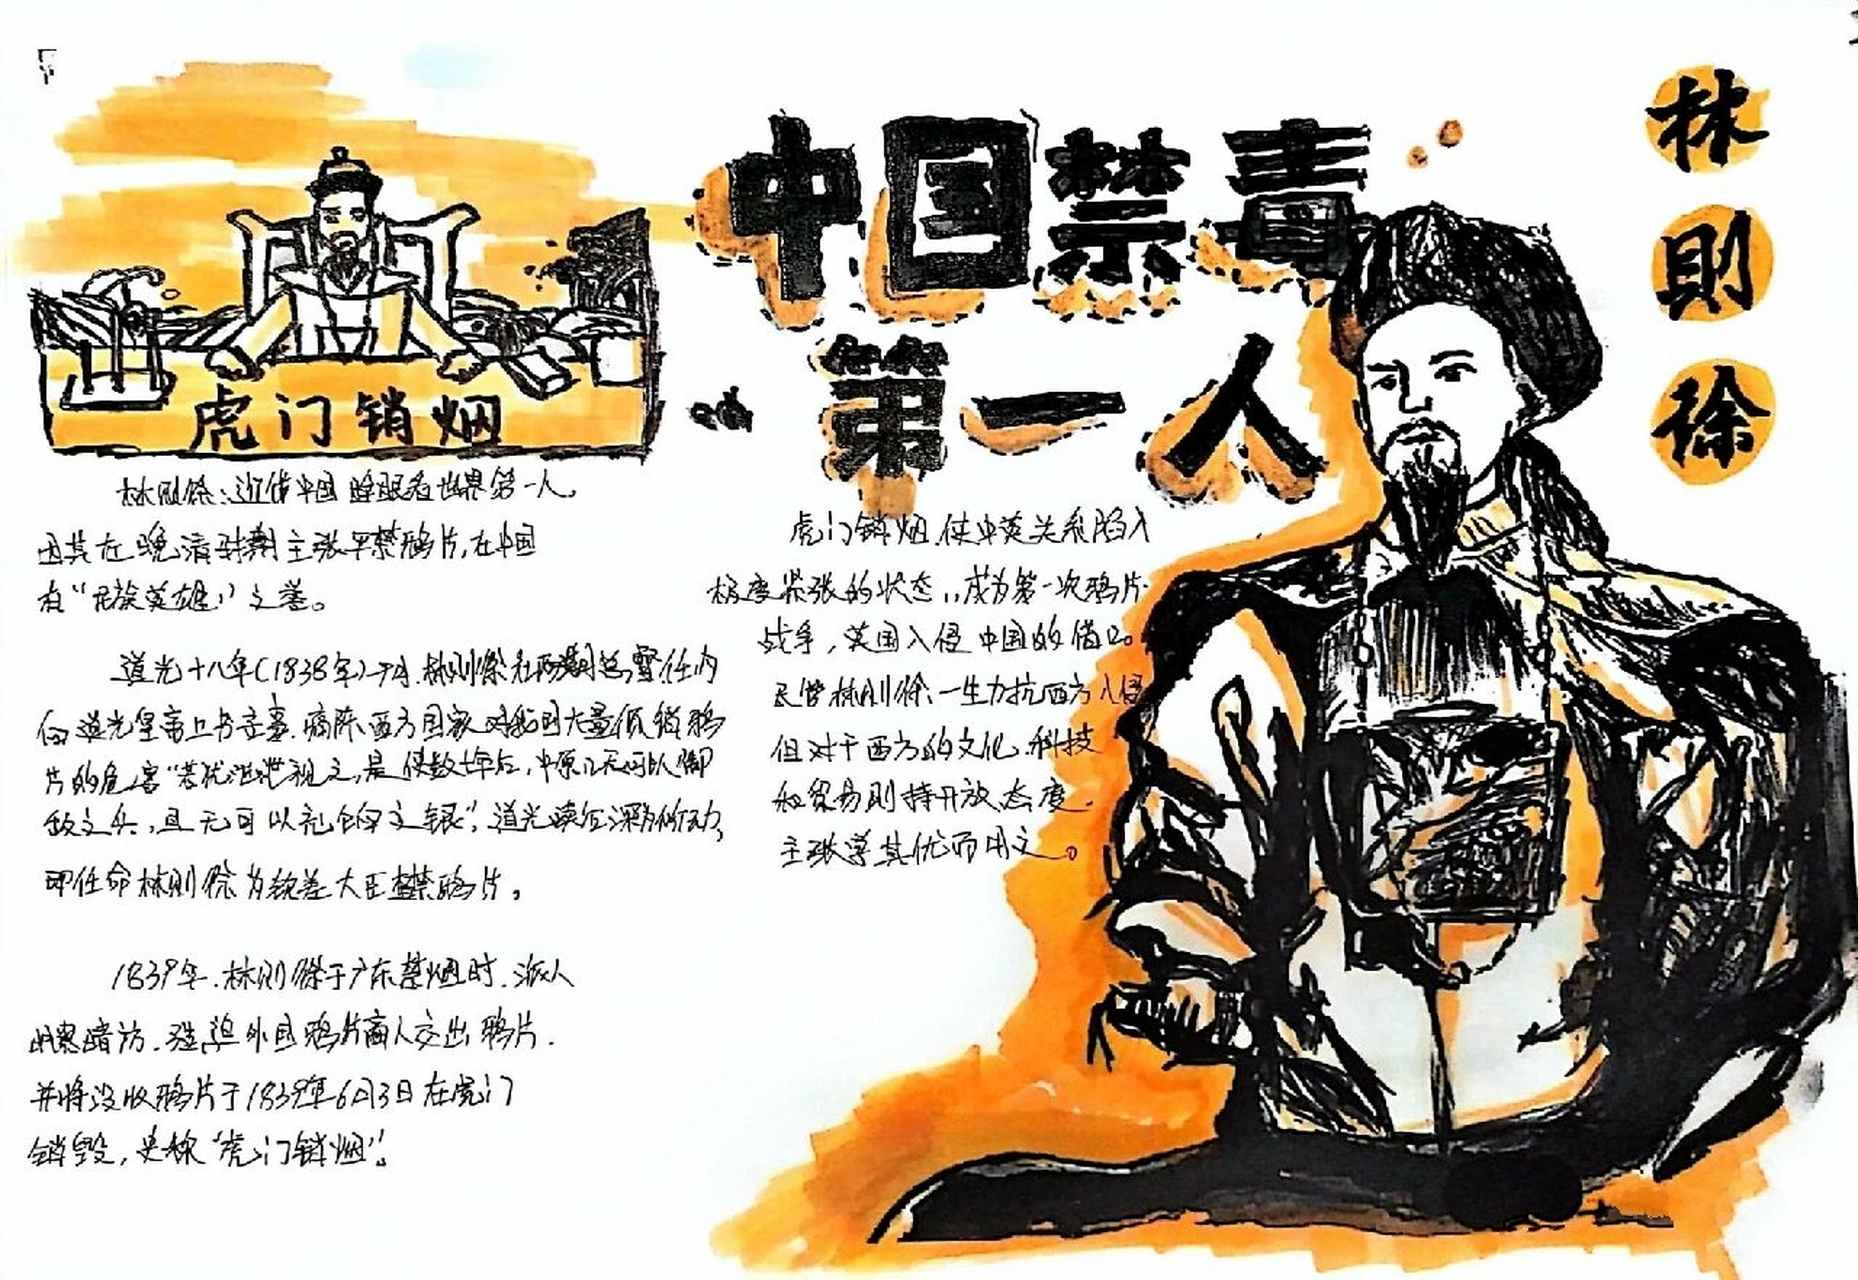 中国禁毒
第一人
林
則
徐
虎门销烟
林则徐:近代中国睁眼看世界第一人,
因其在晚清时期主张严禁鸦片,在中国
有“民族英雄”之誉。
道光十八年(1838年)林则徐在总督任内
向道光皇帝上书言事,痛陈西方国家对我国大量倾销鸦
片的危害“若犹泄泄视之,是使数十年后,中原几无可以御
敌之兵,且无可以充饷之银”,道光读后深为所动,
即任命林则徐为钦差大臣禁鸦片。
1839年.林则徐于广东禁烟时.派人
明察暗访.强迫外国鸦片商人交出鸦片.
并将没收鸦片于1839年6月3日在虎门
销毁,史称“虎门销烟”。
虎门销烟.使中英关系陷入
极度紧张的状态,,成为第一次鸦片
战争,英国入侵中国的借口。
尽管林则徐一生力抗西方入侵
但对于西方的文化.科技
和贸易则持开放态度.
主张学其优而用之。